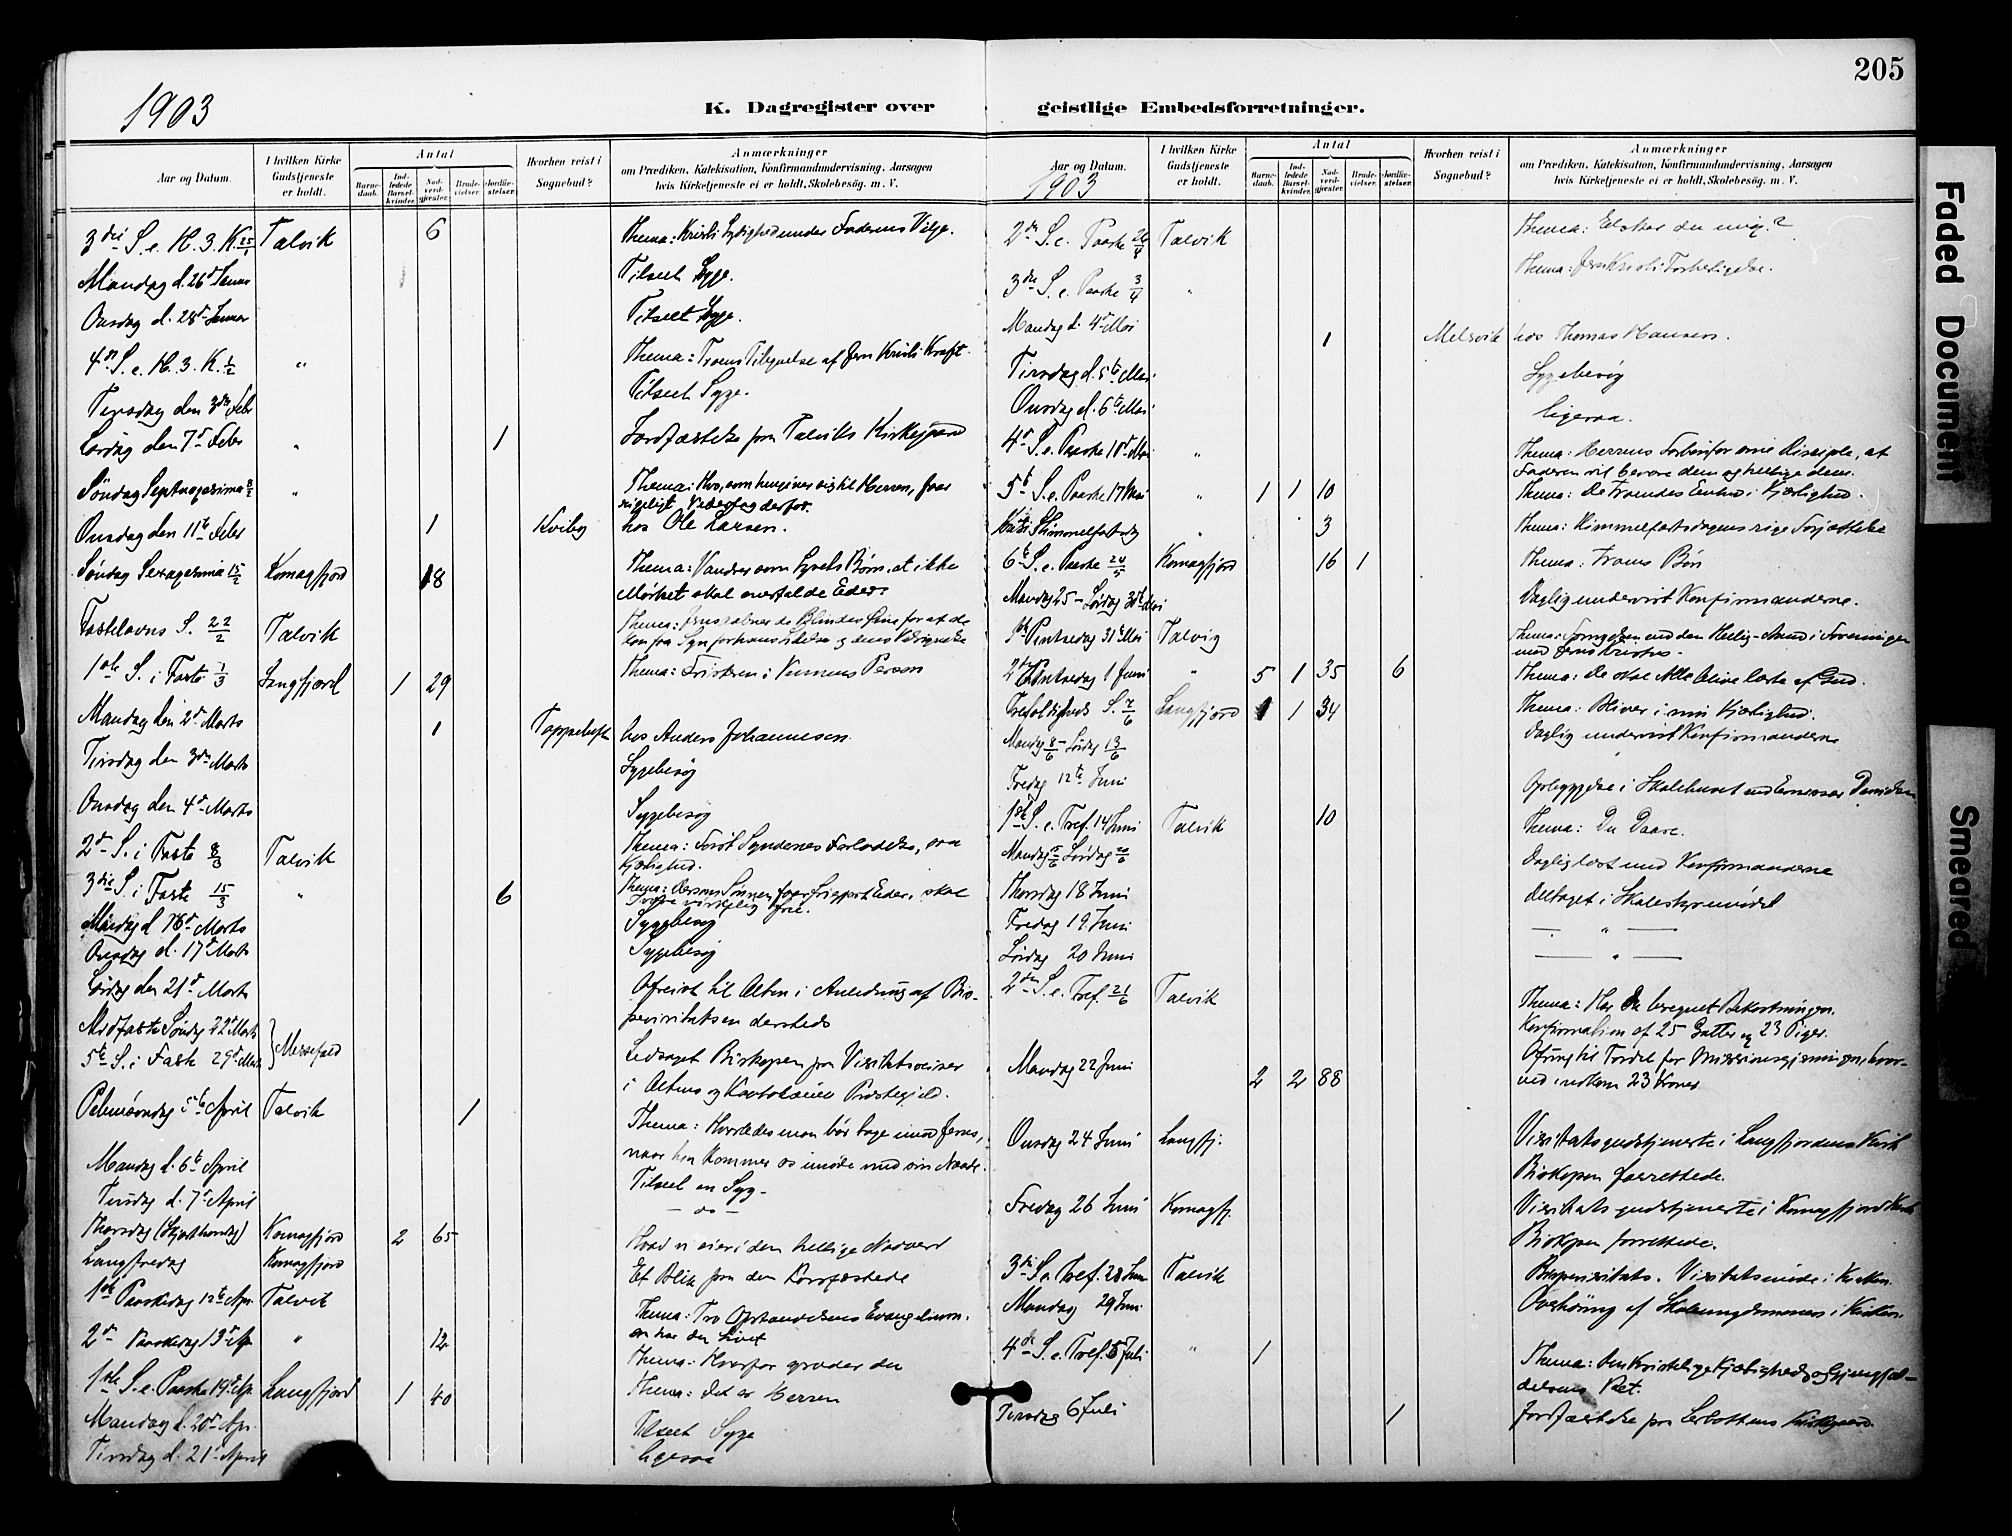 205
1903
K. Dagregister over geistlige Embedsforretninger.
Aar og Datum.
I hvilken Kirke Gudstjeneste er holdt.
Antal
Barnedaab.
Indledede Barselkvinder.
Nadverdgjester.
Brudevielser.
Jordfæstelser.
Hvorhen reist i Sognebud?
Anmærkninger
om Prædiken, Katekisation, Konfirmandundervisning, Aarsagen
hvis Kirketjeneste ei er holdt, Skolebesøg. m. V.
3die S. e. H. 3. K. 25/1 Talvik 6 Thema: Kristi Lydighed under Faderens Vilje.
Mandag d. 26d Januar Tilseet Syge.
Onsdag d. 28d Januar Tilseet Syge.
4d S. e. H. 3. K. 1/2 " Thema: Troens Tilegnelse af Jesu Kristi Kraft.
Tirsdag den 3die Febr Tilseet Syge.
Lørdag den 7d Febr " 1 Jordfæstelse paa Talviks Kirkegaard
Søndag Septuagesima 8/2 " Thema: Hvo, som hengiver sig til Herren, faar
rigeligt Vederlag derfor.
Onsdag den 11te Febr 1 Kviby hos Ole Larsen.
Søndag Sexagesima 15/2 Komagfjord 18 Thema: Vandrer som Lysets Børn, at ikke
Mørket skal overfalde Eder.
Fastelavns S. 22/2 Talvik Thema: Jesus aabner de Blindes Øine for at de
1ste S. i Faste 1/3 Langfjord 1 29 Thema: Fristeren i Vennens Person
Mandag den 2d Marts 1 hos Anders Johannesen
Tirsdag den 3die Marts Sygebesøg
Onsdag den 4d Marts Sygebesøg
2d S. i Faste 8/3 Talvik Thema: Først Syndernes Forladelse, saa
Kjærlighed.
3die S. i Faste 15/3 " 6 Thema: Dersom Sønnen faar frigjort Eder, skal
I være virkelig frie.
Mandag d 16d Marts Sygebesøg
Onsdag d. 17d Marts Sygebesøg
Lørdag den 21d Marts Afreist til Alten i Anledning af Bis-
pevisitatsen dersteds
Midfaste Søndag 22d Marts
5te S. i Faste 29d Marts Messefald Ledsaget Biskopen paa Visitatsreiser
i Altens og Kautokeino Præstegjeld.
Palmesøndag 5te April Talvik 1 Thema: Hvorledes man bør tage imod Jesus,
naar han kommer os imøde med sin Naade.
Mandag d. 6te April Tilseet en Syg.
Tirsdag d. 7d April — do —
Thorsdag (Skjærthorsdag) Komagfjord 2 65 Hvad vi eier i den hellige Nadverd
Langfredag Komagfjord Et Blik paa den Korsfæstede
1ste Paaskedag 12te Apr. Talvik Thema: Tro Opstandelsens Evangelium,
saa har du Livet
2d Paaskedag 13d Ap " 12 Thema: Hvorfor græder du
1ste S. e. Paaske 19d Ap. Langfjord 1 40 Thema: Det er Herren
Mandag d. 20d Apr. Tilseet Syge
Tirsdag d. 21d April ligesaa
Aar og Datum.
1903
I hvilken Kirke Gudstjeneste er holdt.
Antal
Barnedaab.
Indledede Barselkvinder.
Nadverdgjester.
Brudevielser.
Jordfæstelser.
Hvorhen reist i Sognebud?
Anmærkninger
om Prædiken, Katekisation, Konfirmandundervisning, Aarsagen
hvis Kirketjeneste ei er holdt, Skolebesøg. m. V.
2den S. e. Paaske 26/4 Talvik Thema: Elsker du mig?
3die S. e. Paaske 3/4 " Thema: Jesu Kristi Forherligelse.
Mandag d. 4d Mai 1 Melsvik hos Thomas Hansen.
Tirsdag d. 5te Mai Sygebesøg
Onsdag d. 6te Mai ligesaa.
4d S. e. Paaske 10d Mai " Thema: Herrens Forbøn for sine Disciple, at
Faderen vil bevare dem og hellige dem.
5te S. e. Paaske 17 Mai " 1 1 10 Thema: De Troendes Enhed i Kjærlighed.
Kristi Himmelfartsdag " 3 Thema: Himmelfartsdagens rige Forjættelse
6te S. e. Paaske 24/5 Komagfjord 16 1 Thema: Troens Bøn
Mandag 25 – Lørdag 30te Mai Daglig undervist Konfirmanderne.
1ste Pintsedag 31te Mai Talvig
med Jesus Kristus.
2den Pintsedag 1 Juni " 5 1 35 6 Thema: De skal Alle blive lærte af Gud.
Trefoldigheds S. 7/6 Langfjord 1 1 34 Thema: Bliver i min Kjærlighed.
Mandag 8/6 – Lørdag 13/6 Daglig undervist Konfirmanderne
Fredag 12te Juni Opbyggelse i Skolehuset
1ste S. e. Tref. 14 Juni Talvik 10 Thema: Du Daare.
Mandag 15/6 Lørdag 20/6 Daglig læst med Konfirmanderne
Thorsdag 18 Juni deltaget i Skolestyremødet
Fredag 19 Juni — " —
Lørdag 20 Juni — " —
2den S. e. Tref. 21/6 Talvik Thema: Har Du beregnet Bekostningen.
Konfirmation af 25 Gutter og 23 Piger.
Mandag 22 Juni 2 2 88 Ofring til Fordel for Missionsgjerningen, hvor-
ved indkom 23 Kroner
Onsdag 24 Juni Langfj. Visitatsgudstjeneste i Langfjordens Kirke
Biskopen forrettede.
Fredag 26 Juni Komagfj. Visitatsgudstjeneste i Komagfjord Kirke
Biskopen forrettede.
3die S. e. Tref. 28 Juni Talvik Bispevisitats. Visitatsmøde i Kirken.
Mandag 29 Juni Overhøring af Skoleungdommen i Kirken.
4de S. e. Tref. 5 Juli " 1 Thema: Den Kristelige Kjærligheds og Gjengjæl-
delsens Ret.
Tirsdag 6 Juli 1 Jordfæstelse paa Lerbottens Kirkegaard.
Faded Document
Smeared